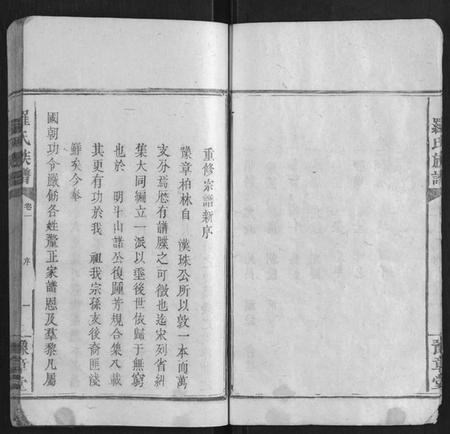 重修宗譜新序
豫章柏林自　漢珠公所以敦一本而萬
支分焉厯有譜牒之可徵也迄宋列省糾
集大同編立一派以垂後世依歸于無窮
也於　明斗山諸公復踵芳規合集八載
其更有功於我　祖我宗孫支後裔匪淺
鮮矣今奉
國朝功令嚴飭各姓釐正家譜恩及羣黎凡屬
羅氏族譜
卷一
序
一
豫章堂
羅氏族譜
豫章堂